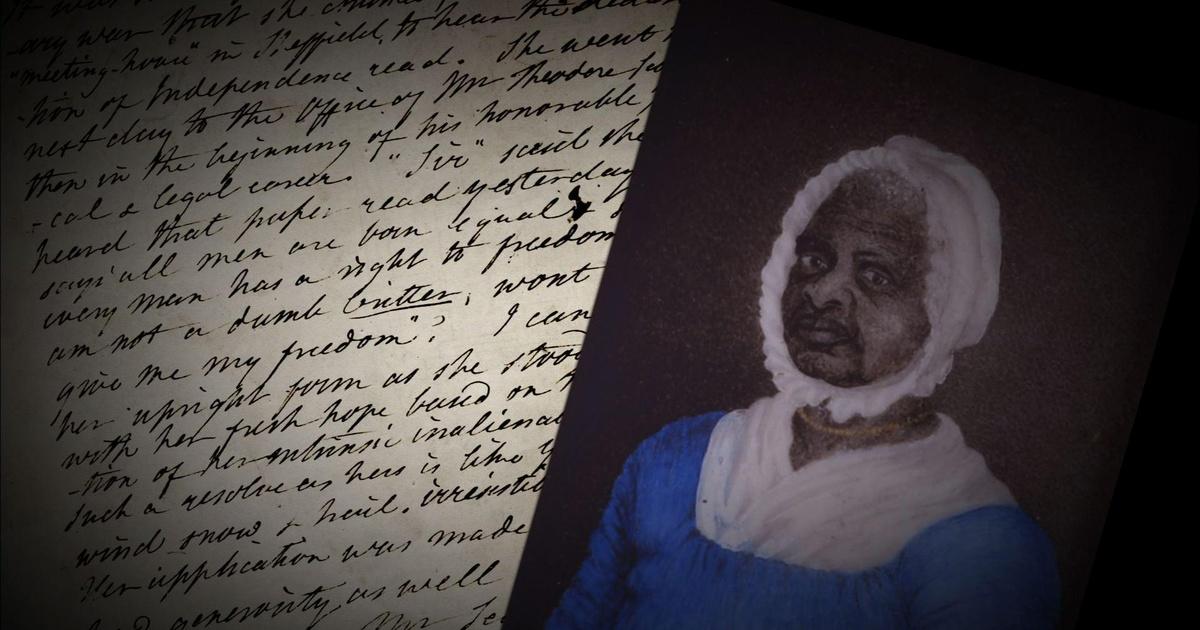 that she
"meeting-house" in Sheffield, to hear the
-tion of Independence read. She went
next day to the office of Mr Theodore
then in the beginning of his honorable
-cal & legal career. "Sir" said she
heard that paper read yesterday
says all men are born equal &
every man has a right to freedom
am not a dumb critter, wont
give me my freedom"? I can
her upright form as she stood
with her fresh hope based on
-tion of her intrinsic inaliena
Such a resolve as hers is like
wind snow & hail, irresisti
Her application was made
generosity, as well
Mr Se